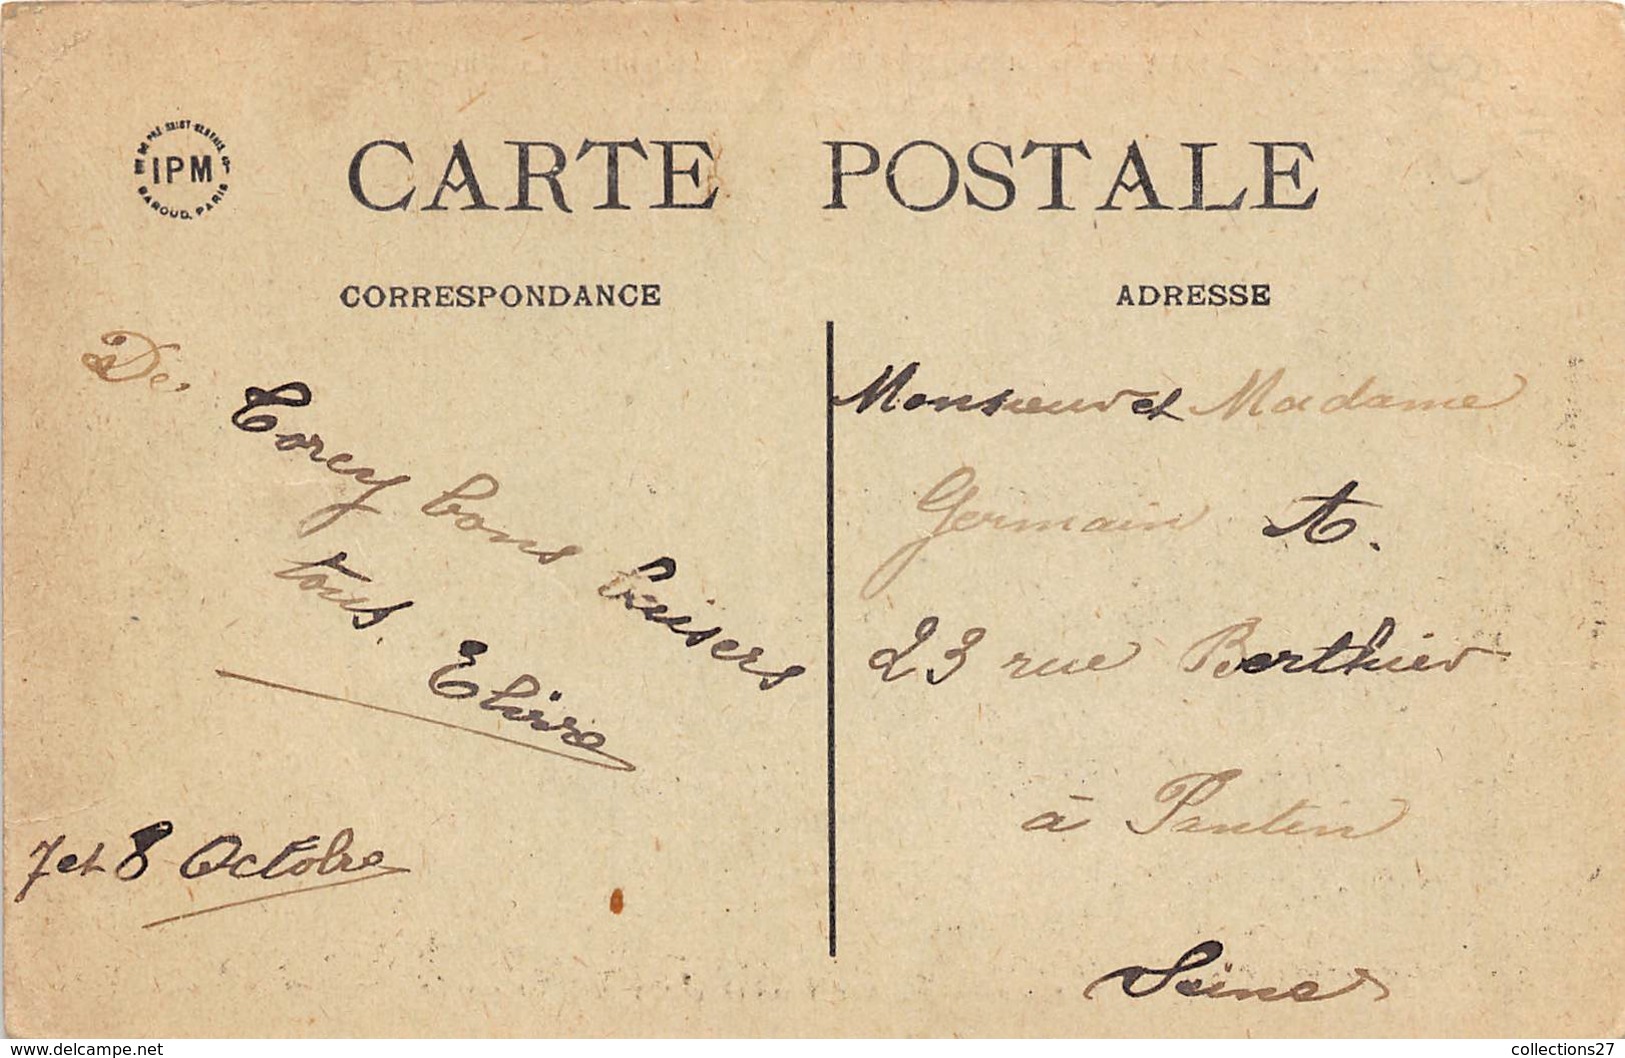 IPM
BAROUD, PARIS
CARTE POSTALE
CORRESPONDANCE
De Torcy bons baisers
tous.
7 et 8 Octobre
ADRESSE
Monsieur et Madame
Germain A.
23 rue Berthier
à Pantin
Seine
delcampe.net
collections27